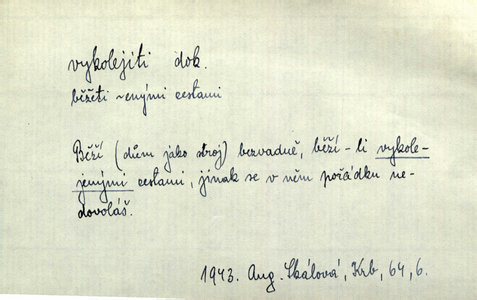 vykolejiti dok.
běžeti ~enými cestami
Běží (dům jako stroj) bezvadně, běží-li vykole-
jenými cestami, jinak se v něm pořádku ne-
dovoláš.
1943. Aug. Skálová, Krb, 64, 6.